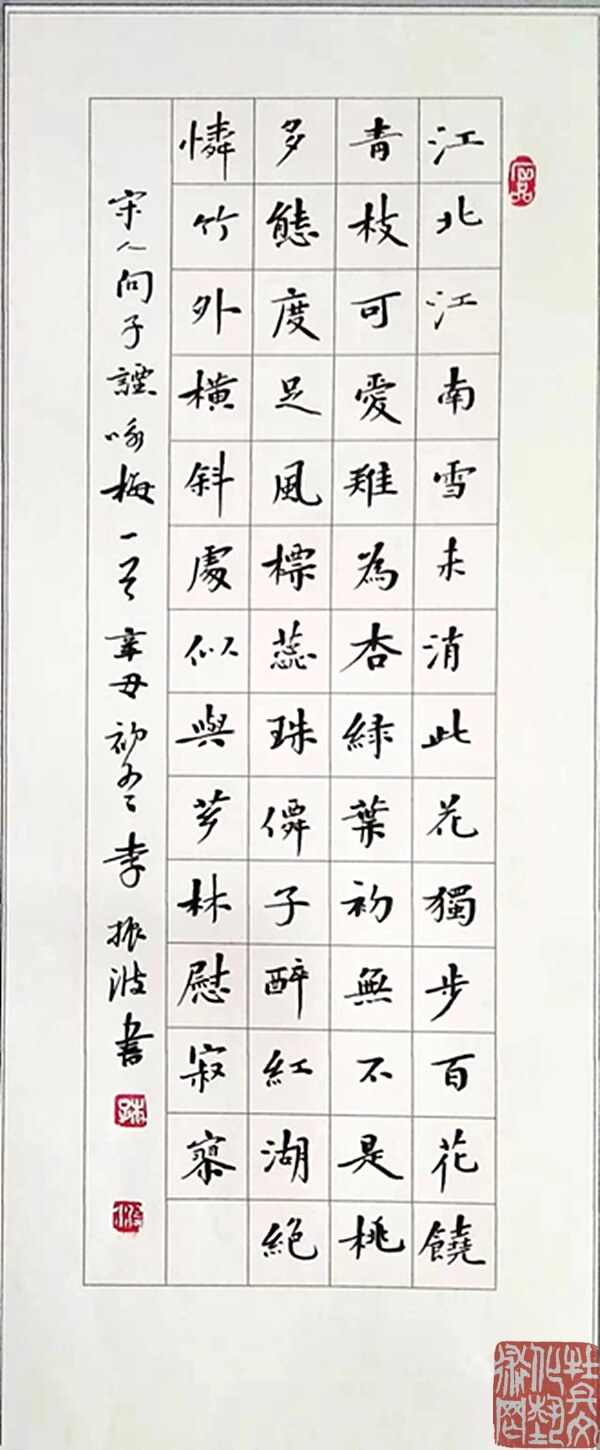 江北江南雪未消此花獨步百花饒
青枝可愛難為杏綠葉初無不是桃
多態度足風標蕊珠僊子醉紅湖絕
憐竹外橫斜處似與薌林慰寂寥
宋人向子諲咏梅一首辛丑初冬李振波書